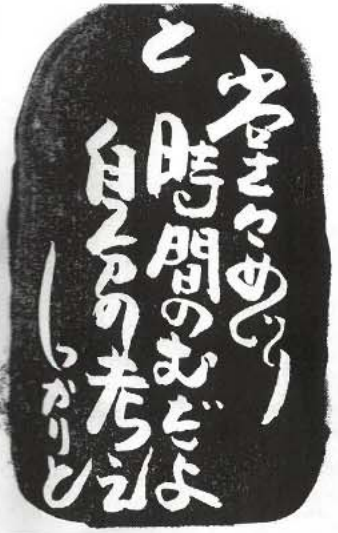 堂々めぐり
と 時間のむだよ
自分の考え
しっかりと